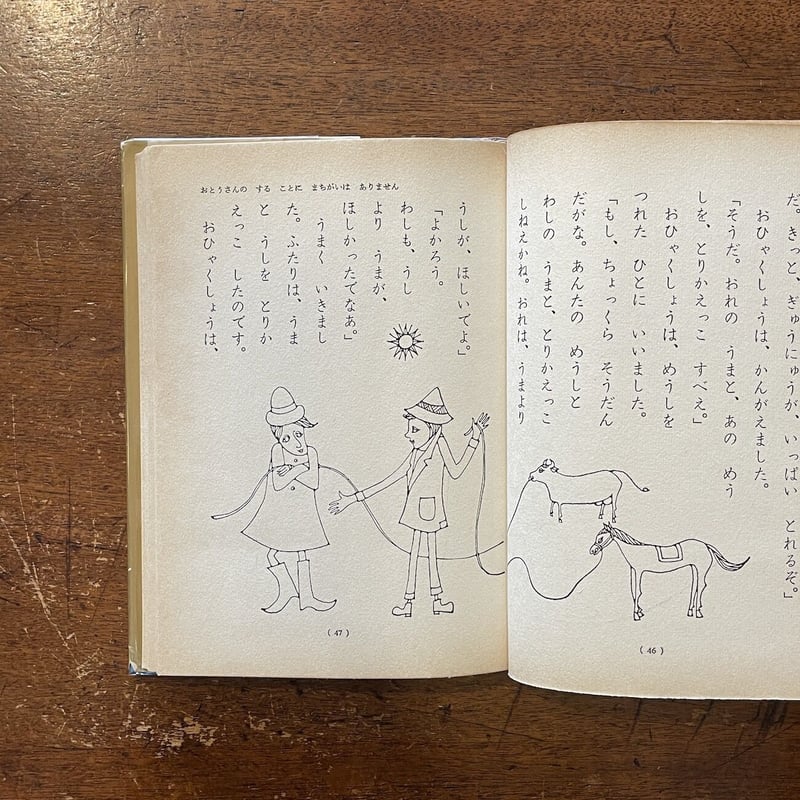 だ。きっと、ぎゅうにゅうが、いっぱい とれるぞ。」
おひゃくしょうは、かんがえました。
「そうだ。おれの うまと、あの めう
しを、とりかえっこ すべえ。」
おひゃくしょうは、めうしを
つれた ひとに いいました。
「もし、ちょっくら そうだん
だがな。あんたの めうしと
わしの うまと、とりかえっこ
しねえかね。おれは、うまより
(46)
おとうさんの する ことに まちがいは ありません
うしが、ほしいでよ。」
「よかろう。
わしも、うし
より うまが、
ほしかったでなあ。」
うまく いきまし
た。ふたりは、うま
と うしを とりか
えっこ したのです。
おひゃくしょうは、
(47)